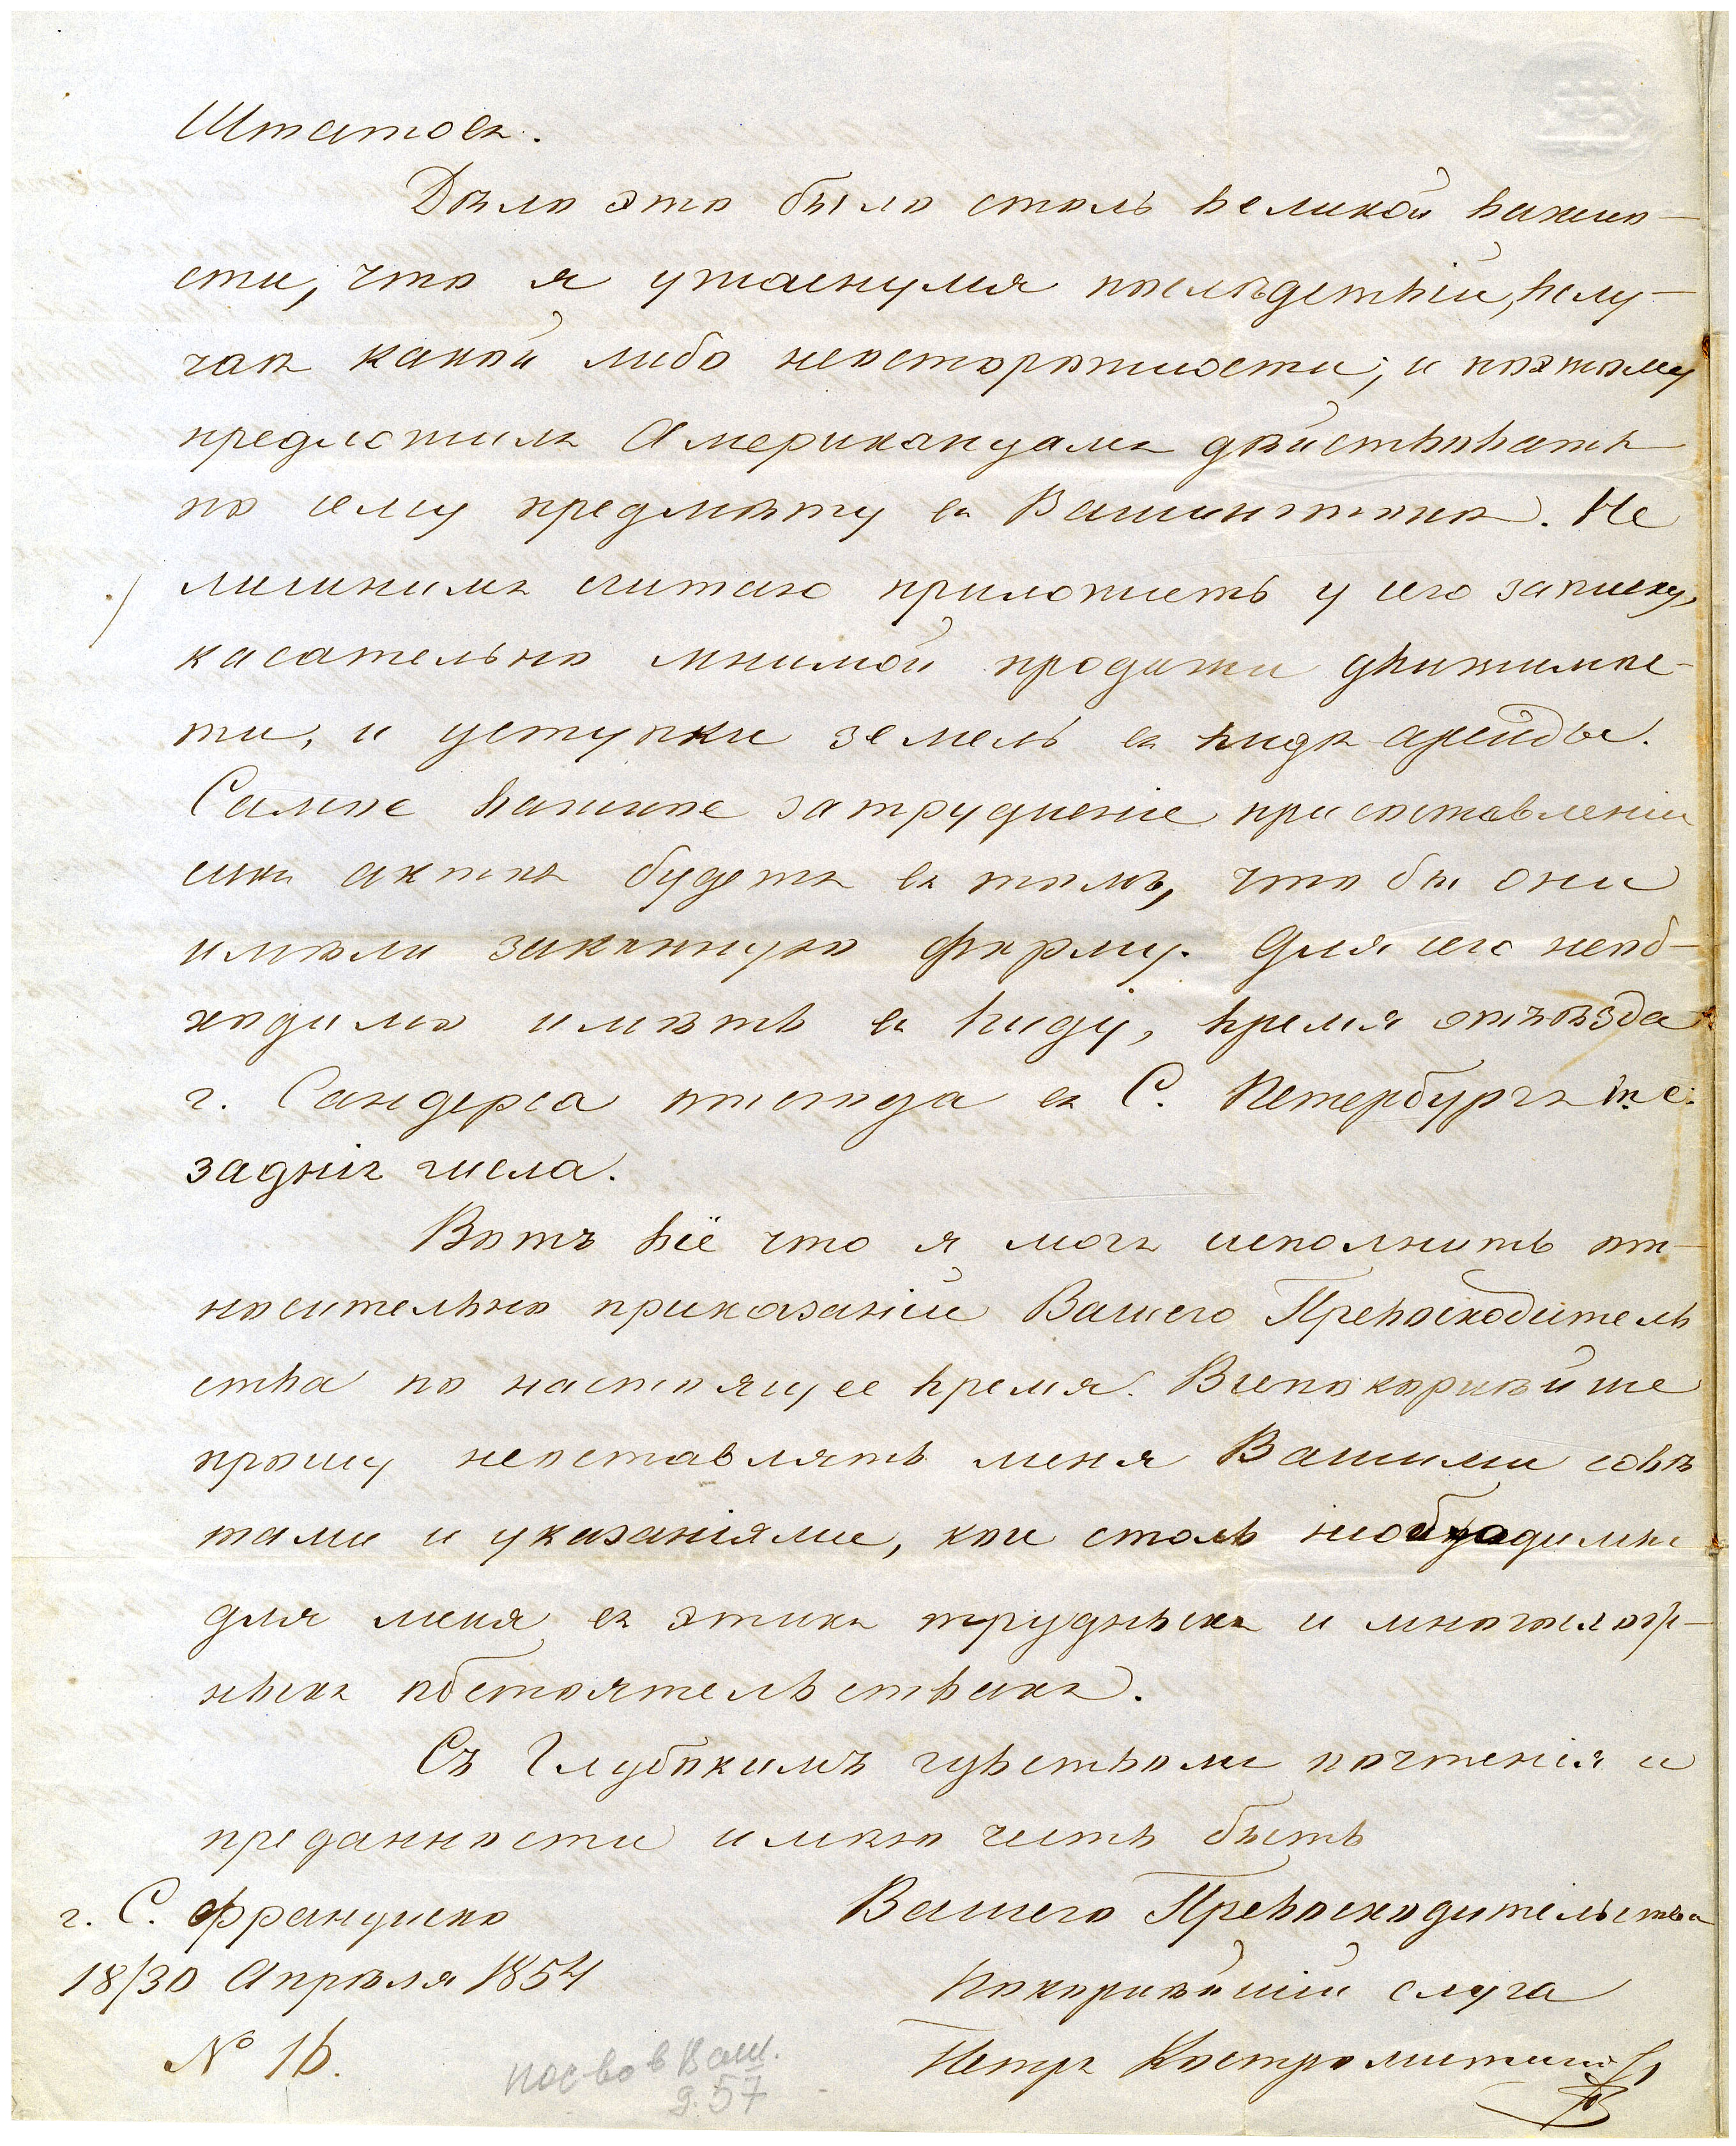 Штатовъ.
Дѣло это было столь великой важно-
сти, что я ужаснулся послѣдствій, въ слу-
чаѣ какой либо неосторожности; и поэтому
предложилъ Американцамъ дѣйствовать
по сему предмѣту въ Вашингтонѣ. Не
лишнимъ считаю приложить у сего записку,
касательно мнимой продажи движимос-
ти, и уступки земель въ видѣ аренды.
Самое важное затрудненіе при составленіи
сихъ актовъ будетъ въ томъ, что бы они
имѣли законную форму. Для сего необ-
ходимо имѣть въ виду, время отъѣзда
г. Сандерса отсюда въ С. Петербургъ т. е.
заднія числа.
Вотъ всё что я могъ исполнить от-
носительно приказаній Вашего Превосходитель
ства по настоящее время. Всепокорнѣйше
прошу неоставлять меня Вашими совѣ
тами и указаніями, кои столь необходимы
для меня въ этихъ трудныхъ и многослож-
ныхъ обстоятельствахъ.
Съ Глубокимъ чувствомъ почтенія и
преданности имѣю честь быть
Вашего Превосходительства
г. С. Франциско
18/30 Апрѣля 1854
Покорнѣйшій слуга
№ 16.
Петръ Костромитиновъ
пос-во в Ваш.
д. 57